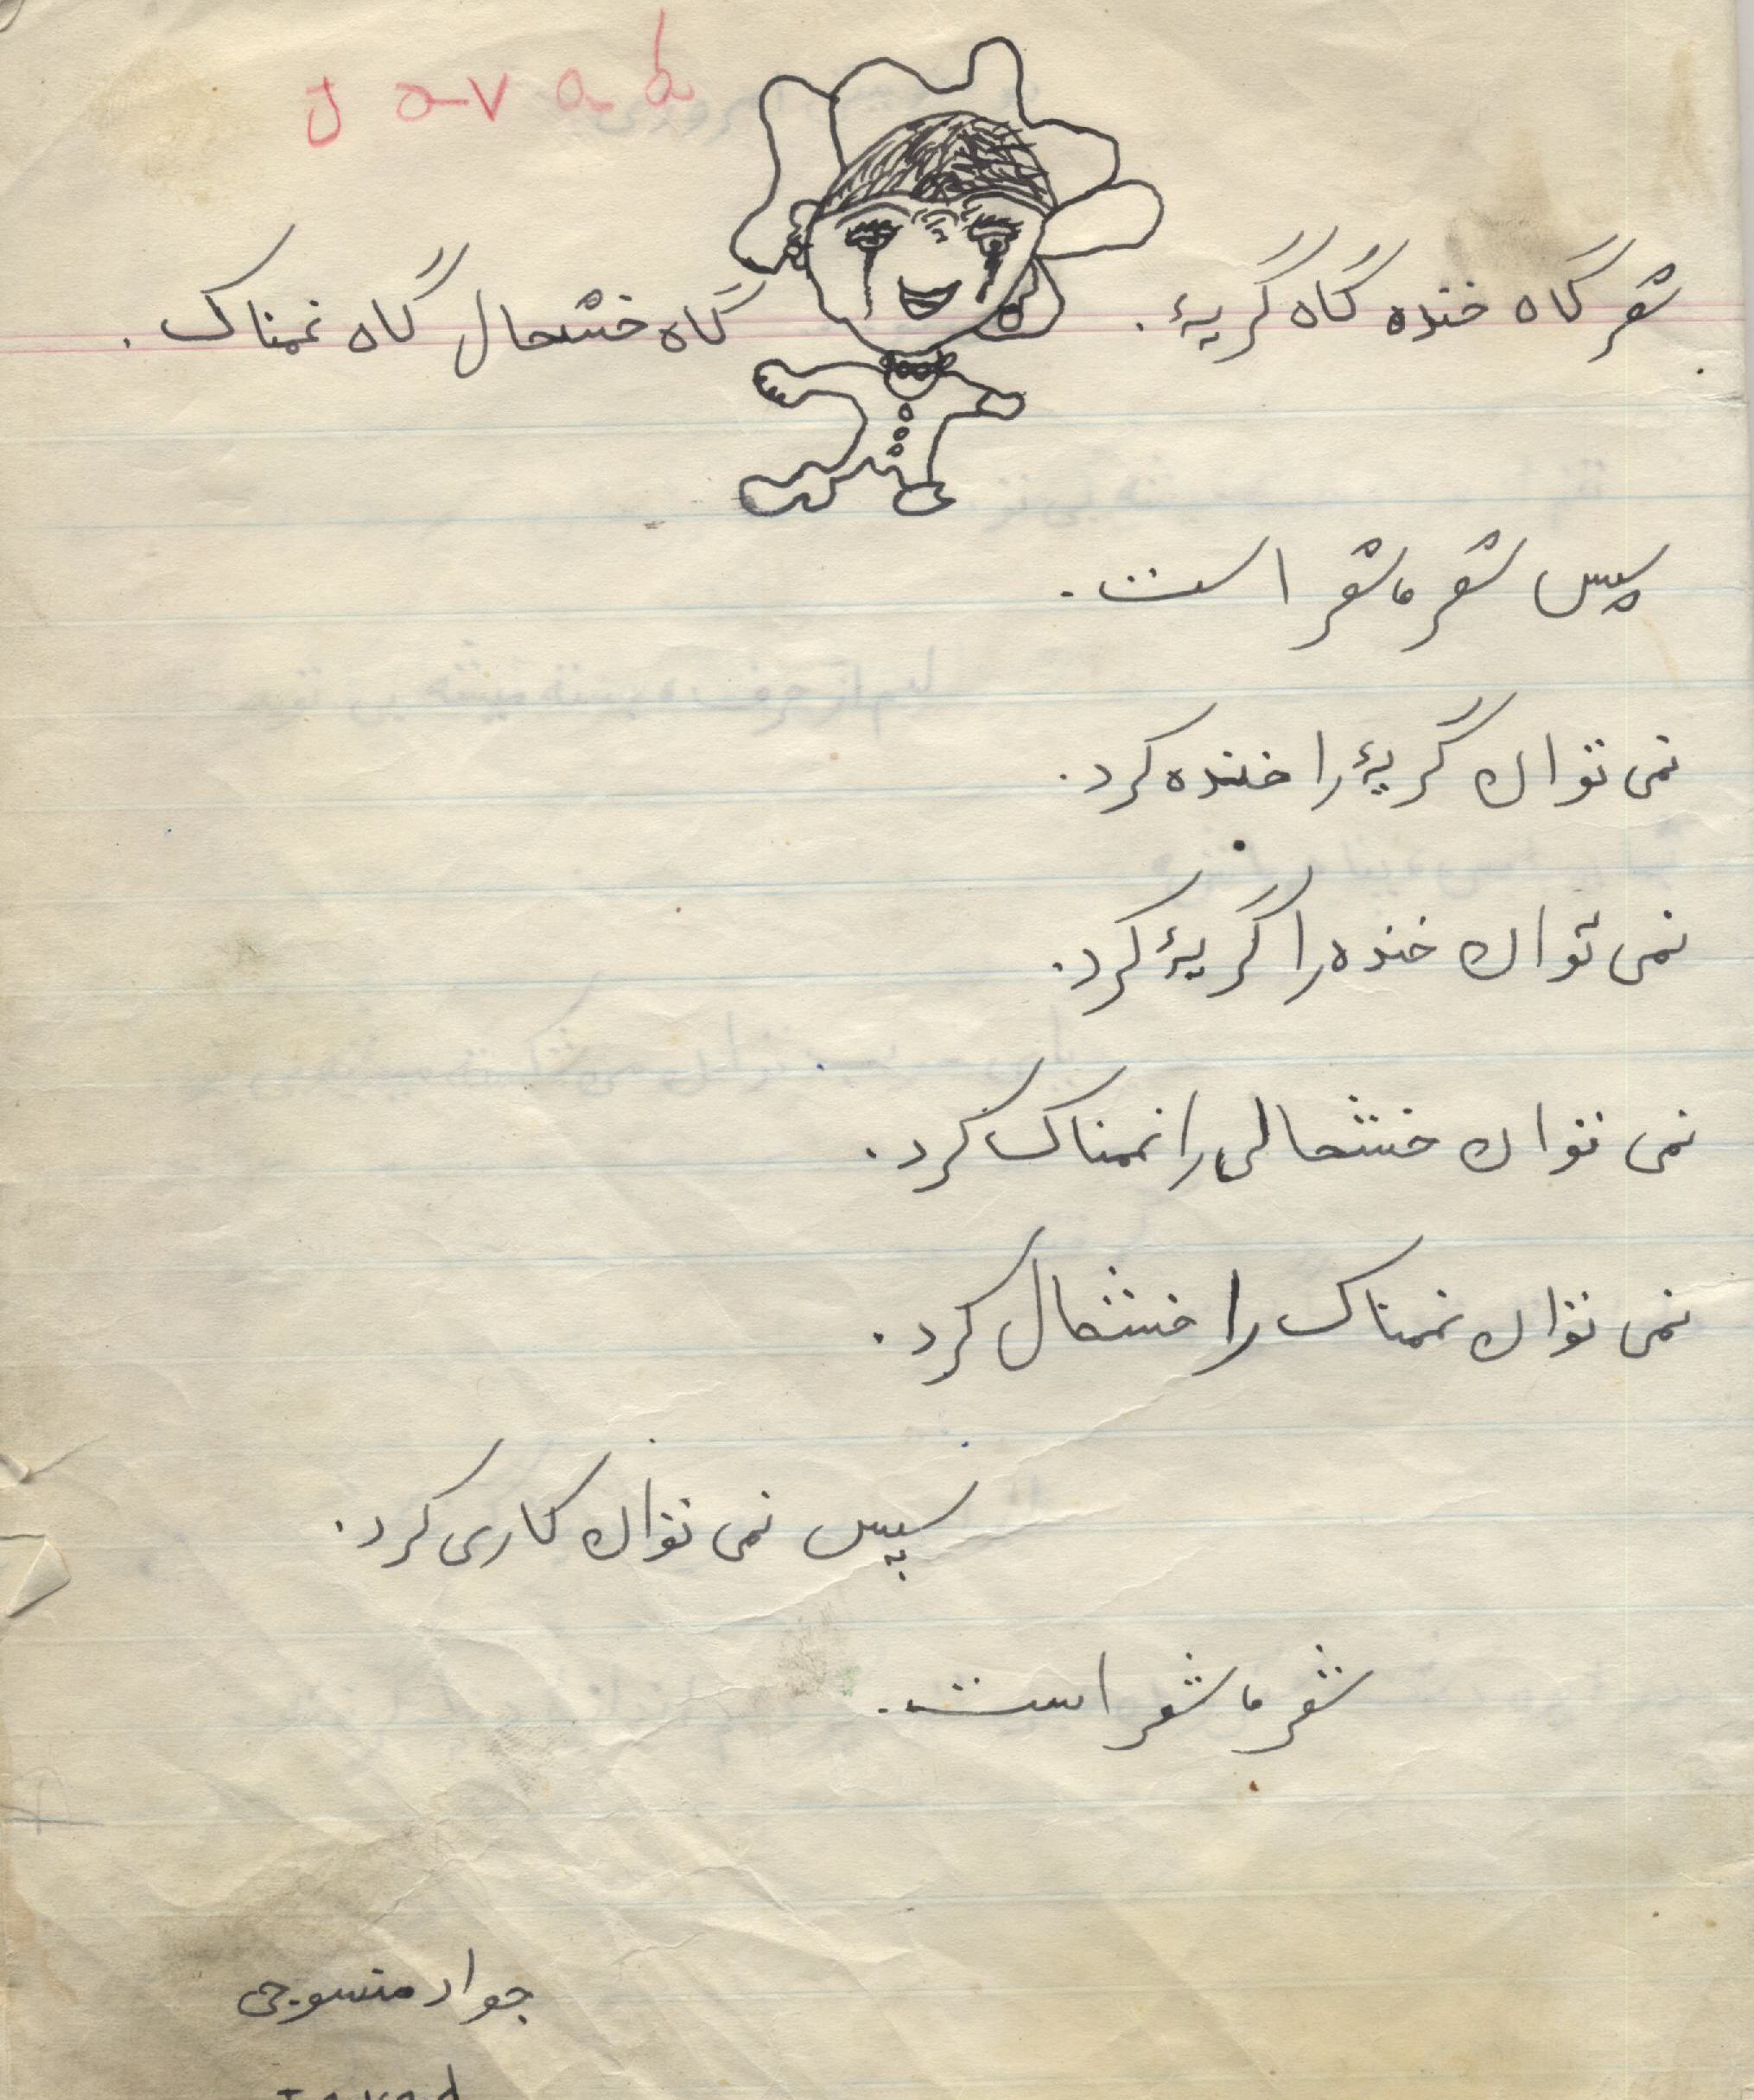 Javad
شعر گاه خنده گاه گریهٔ. گاه خشحال گاه نمناک.
سپس شعر ما شعر است.
نمی توان گریهٔ را خنده کرد.
نمی توان خنده را گریهٔ کرد.
نمی توان خشحالی را نمناک کرد.
نمی توان نمناک را خشحال کرد.
سپس نمی توان کاری کرد.
شعر ما شعر است.
جواد
Javad